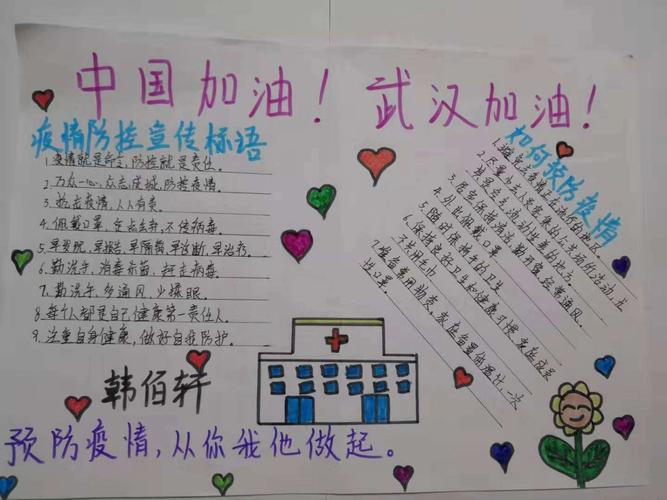 中国加油！武汉加油！
疫情防控宣传标语
1.疫情就是命令，防控就是责任。
2.万众一心，众志成城，防控疫情。
3.抗击疫情，人人有责。
4.佩戴口罩，
5.早发现，早报告，早隔离，早诊断，早治疗。
6.勤洗手，
7.勤洗手，多通风，少揉眼。
8.每个人都是自己健康第一责任人。
9.注重自身健康，做好自我防护。
如何预防疫情
1.避免去疫情正在流行的地区。
2.尽量少去人员密集的公共场所活动，尤
其是空气流动性差的地方。
3.居室保持清洁，勤开窗，经常通风。
4.外出佩戴口罩。
5.随时保持手的卫生
6.保持良好卫生和健康习惯，家庭成员
不共用毛巾
7.准备常用物资，家庭备置体温计，一次
性口罩。
韩佰轩
预防疫情，从你我他做起。